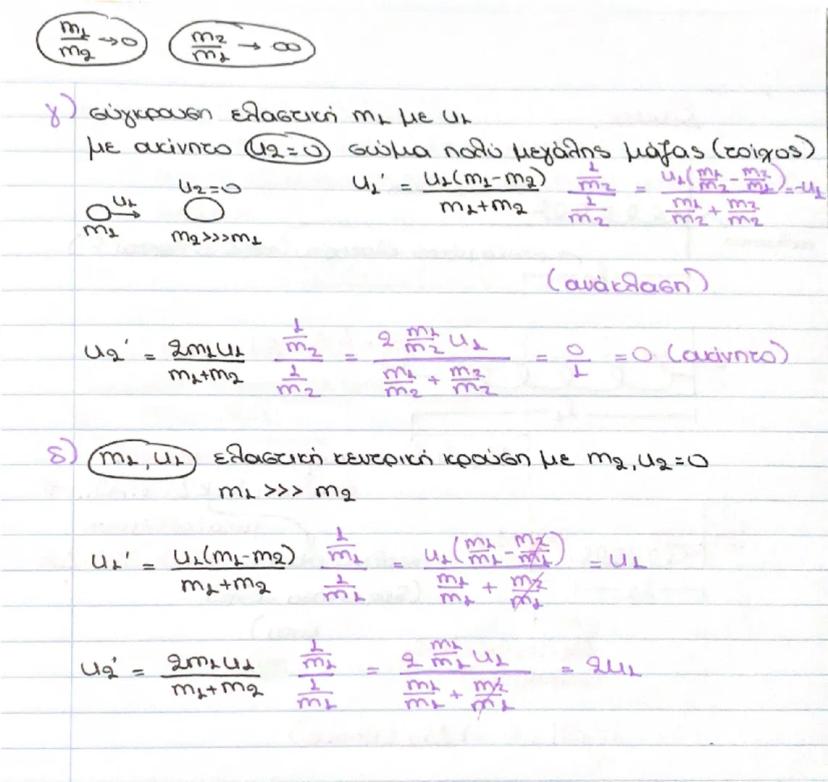 m₁/m₂ → 0   m₂/m₁ → ∞
γ) σύγκρουση ελαστική m₁ με u₁
με ακίνητο u₂=0 σώμα πολύ μεγάλης μάζας (τοίχος)
m₁ u₁ u₂=0 m₂>>>m₁
u₁' = u₁(m₁-m₂)/(m₁+m₂) (1/m₂)/(1/m₂) = u₁(m₁/m₂ - m₂/m₁)/(m₁/m₂ + m₂/m₂) = -u₁
(ανάκλαση)
u₂' = 2m₁u₁/(m₁+m₂) (1/m₂)/(1/m₂) = 2 (m₁/m₂) u₁/(m₁/m₂ + m₂/m₂) = 0/1 = 0 (ακίνητο)
δ) m₁, u₁ ελαστική κεντρική κρούση με m₂, u₂=0
m₁ >>> m₂
u₁' = u₁(m₁-m₂)/(m₁+m₂) (1/m₁)/(1/m₁) = u₁(m₁/m₁ - m₂/m₁)/(m₁/m₁ + m₂/m₁) = u₁
u₂' = 2m₁u₁/(m₁+m₂) (1/m₁)/(1/m₁) = 2 (m₁/m₁) u₁/(m₁/m₁ + m₂/m₁) = 2u₁